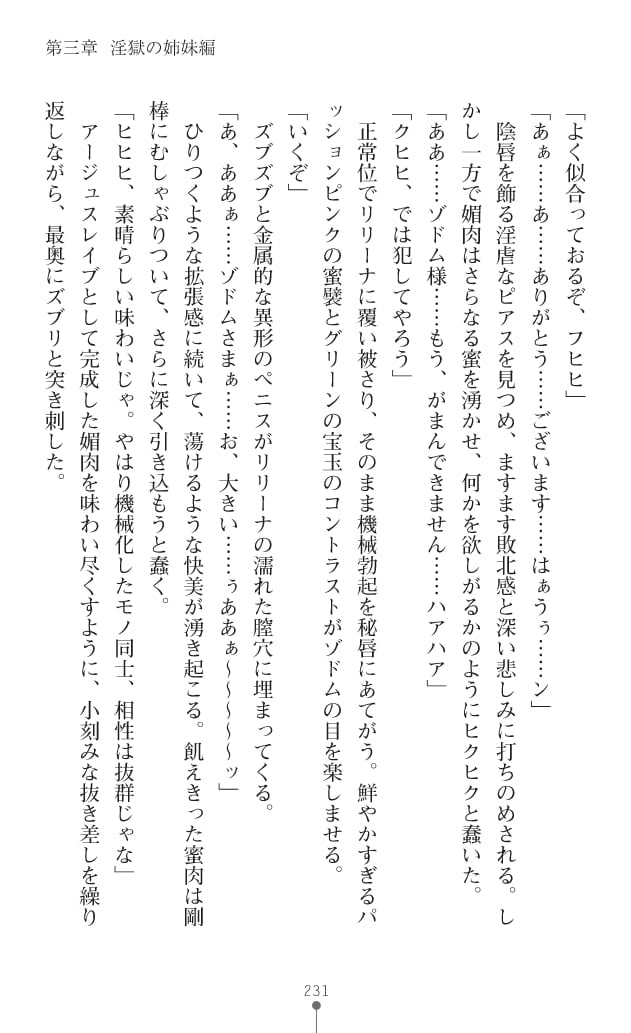 第三章 淫獄の姉妹編
「よく似合っておるぞ、フヒヒ」
「あぁ……あ……ありがとう……ございます……はぁうぅ……ン」
陰唇を飾る淫虐なピアスを見つめ、ますます敗北感と深い悲しみに打ちのめされる。し
かし一方で媚肉はさらなる蜜を湧かせ、何かを欲しがるかのようにヒクヒクと蠢いた。
「ああ……ゾドム様……もう、がまんできません……ハアハア」
「クヒヒ、では犯してやろう」
正常位でリリーナに覆い被さり、そのまま機械勃起を秘唇にあてがう。鮮やかすぎるパ
ッションピンクの蜜襞とグリーンの宝玉のコントラストがゾドムの目を楽しませる。
「いくぞ」
ズブズブと金属的な異形のペニスがリリーナの濡れた膣穴に埋まってくる。
「あ、ああぁ……ゾドムさまぁ……お、大きい……ぅああぁ～～～～～ッ」
ひりつくような拡張感に続いて、蕩けるような快美が湧き起こる。飢えきった蜜肉は剛
棒にむしゃぶりついて、さらに深く引き込もうと蠢く。
「ヒヒヒ、素晴らしい味わいじゃ。やはり機械化したモノ同士、相性は抜群じゃな」
アージュスレイブとして完成した媚肉を味わい尽くすように、小刻みな抜き差しを繰り
返しながら、最奥にズブリと突き刺した。
231